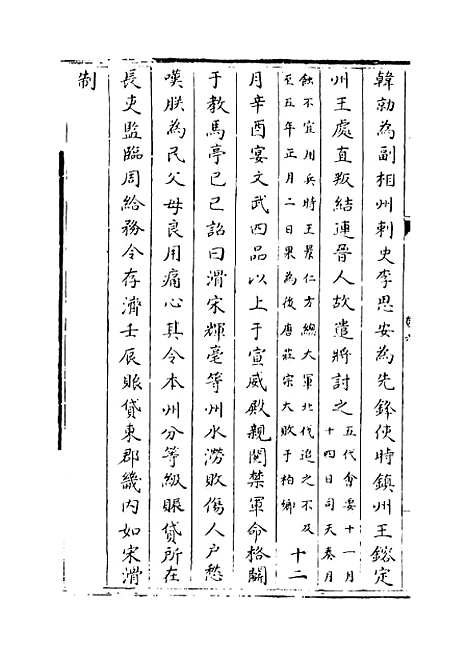 韓勍為副相州刺史李思安為先鋒使時鎮州王鎔定
州王處直叛結連晉人故遣將討之五代會要十一月十四日司天奏月
蝕不宜用兵時王景仁方總大軍北伐追之不及至五年正月二日果為後唐莊宗大敗于柏鄉十二
月辛酉宴文武四品以上于宣威殿親閱禁軍命格鬭
于教馬亭己巳詔曰滑宋輝亳等州水澇敗傷人户愁
嘆朕為民父母良用痛心其令本州分等級賑貸所在
長吏監臨周給務令存濟壬辰賑貸東郡畿内如宋滑
制